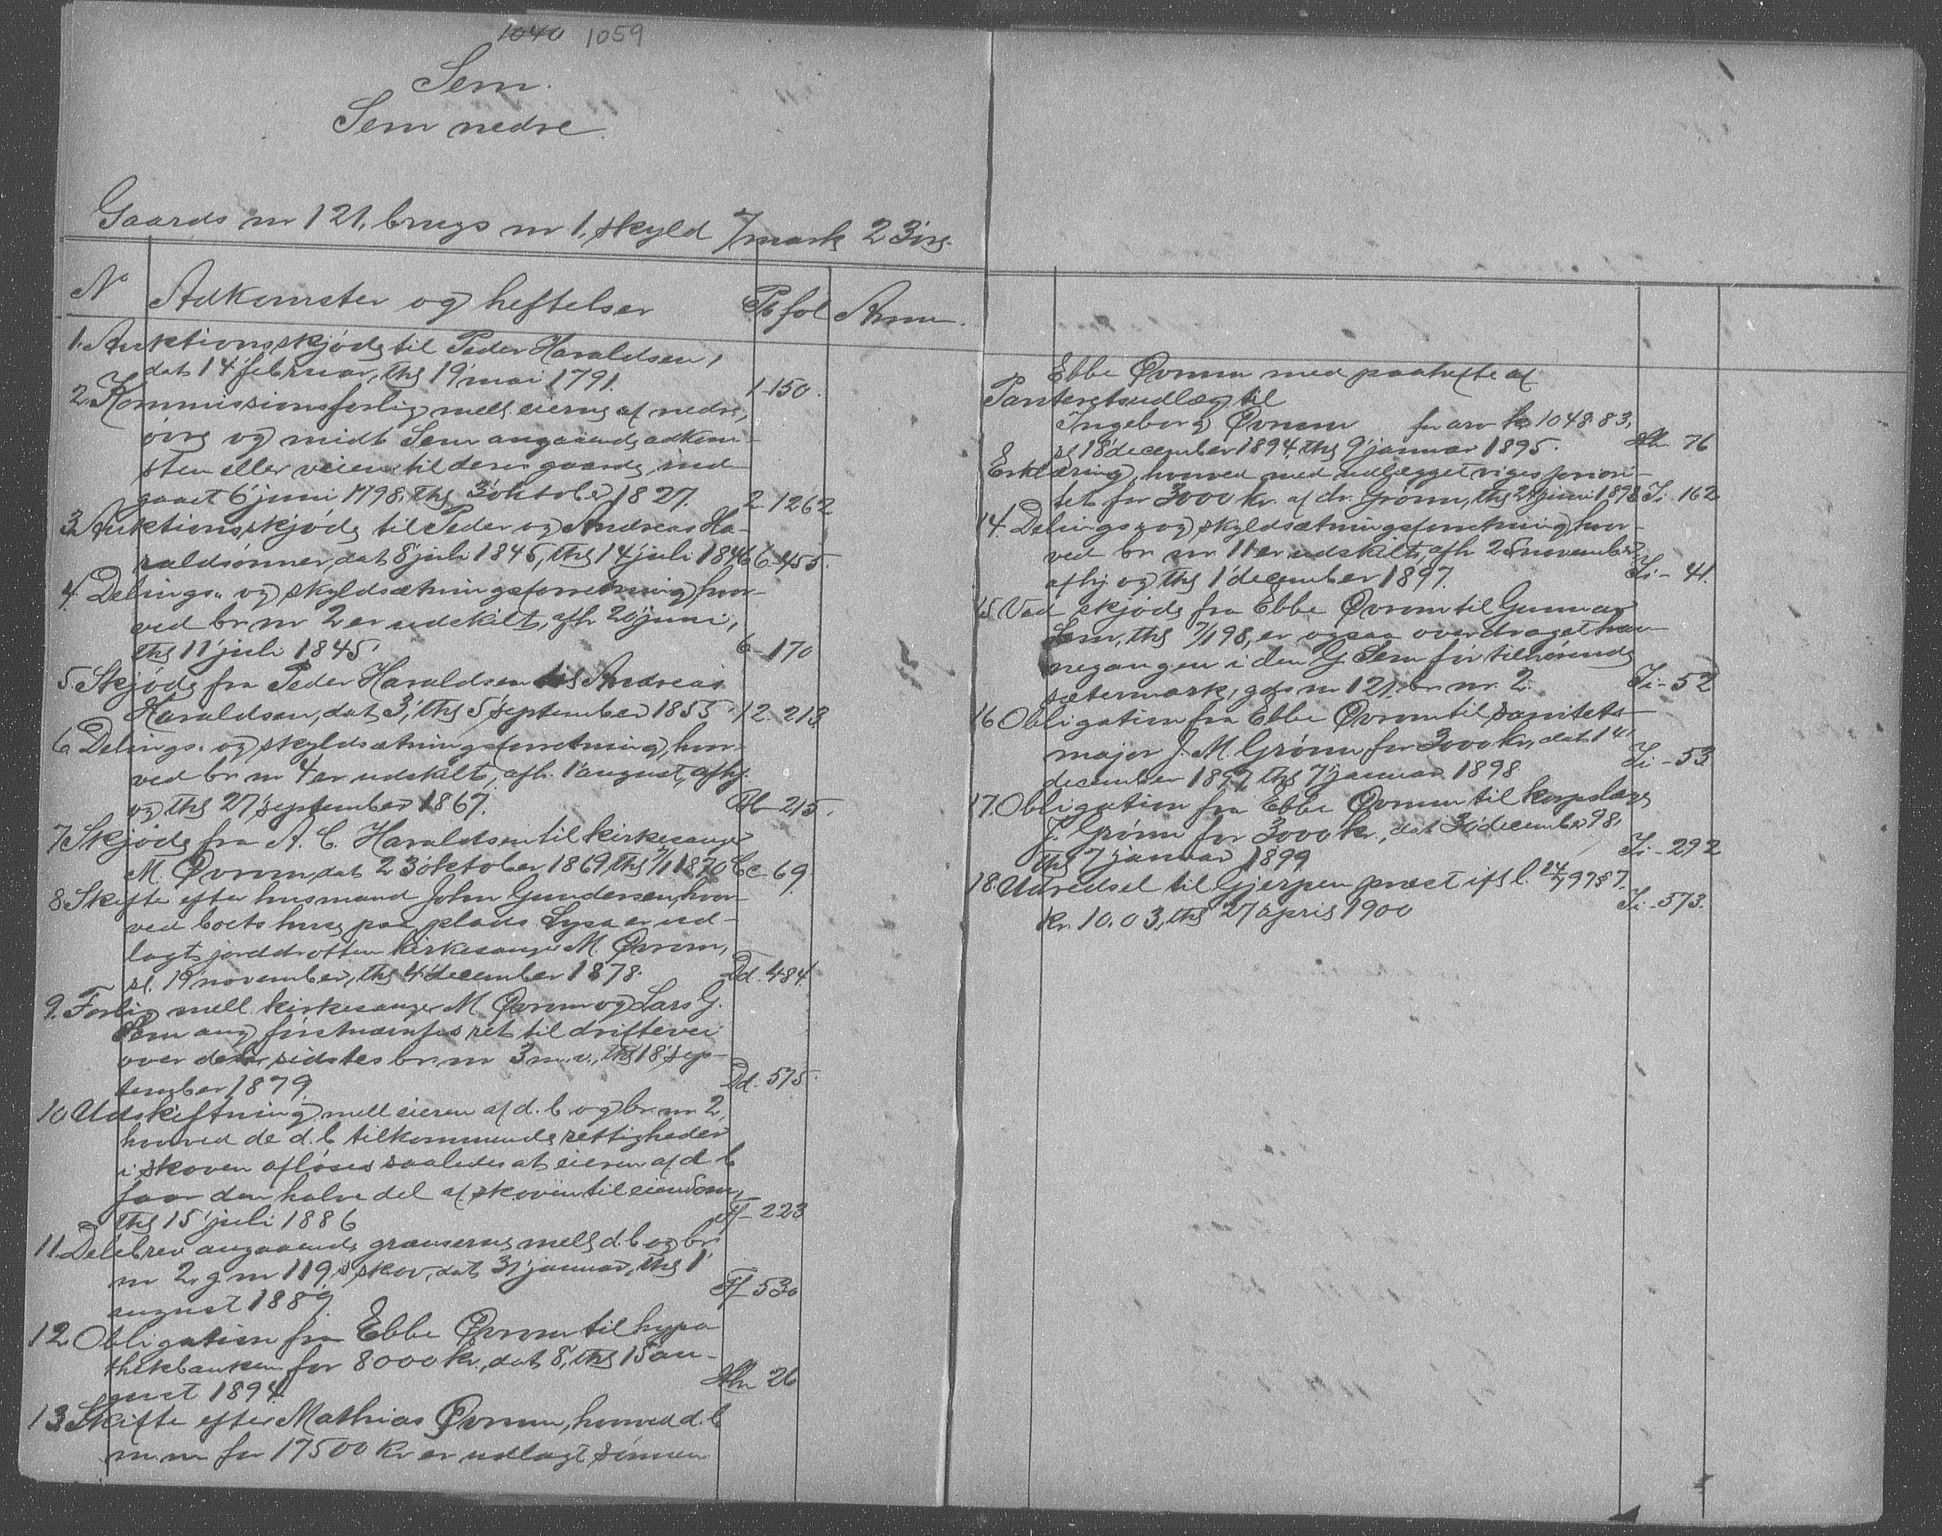 1040 1059
Sem.
Sem nedre
Gaards nr 121, brugs nr 1, skyld 7 mark 23 øre.
No Adkomster og heftelser Pb fol Anm.
1. Auktionsskjøde til Peder Haraldsen,
dat 14 februar, thl 19' mai 1791. 1-150.
2. Kommissionsforlig mell eierne af nedre,
øvre og midt Sem angaaende adkom-
sten eller veiene til deres gaarde ind-
gaaet 6' juni 1798, thl 3' oktober 1827. 2-1262
3. Auktionsskjøde til Peder og Andreas Ha-
raldsønner, dat 8' juli 1845, thl 14' juli 1846 6-455.
4. Delings- og skyldsætningsforretning hvor-
ved br nr 2 er udskilt, afh 20' juni,
thl 11' juli 1845. 6-170
5. Skjøde fra Peder Haraldsen til Andreas
Haraldsen, dat 3, thl 5' september 1855. 12-213
6. Delings- og skyldsætningsforretning hvor-
ved br nr 4 er udskilt, afh. 1' august, afhj.
og thl 27' september 1867. Bb-215.
7. Skjøde fra A. C. Haraldsen til kirkesanger
M. Øvrum dat 23' oktober 1869 thl 7/1 1870 Cc-69
8. Skifte efter husmand John Gundersen, hvor-
ved boets huse paa plads Lysa er ud-
lagt jorddrotten kirkesanger M. Øvrum,
sl. 19' november, thl 4' december 1878. Dd-484.
9. Forlig mell kirkesanger M Øvrum og Lars G.
Sem ang førstnævntes ret til driftevei
over den sidstes br. nr 3 m. v., thl 18' sep-
tember 1879. Dd-575.
10 Udskiftning mell eieren af d. b og br. nr 2,
hvorved de d. b tilkommende rettigheder
i skoven afløses saaledes at eieren af d. b
faar den halve del af skoven til eiendom,
thl 15' juli 1886 Ff-223
11. Delebrev angaaende grænserne mell d. b og br
nr 2, g. nr 119's skov, dat 31' januar, thl 1'
august 1889. Ff-530
12 Obligation fra Ebbe Øvrum til hypo
thekbanken for 8000 kr, dat 8, thl 15 au-
gust 1894. Hh 26
13. Skifte efter Mathias Øvrum, hvorved d. b
m. m for 17500 kr er udlagt sønnen
Ebbe Øvrum med paahefte af
Panteretsudlæg til
Ingeborg Øvrum for arv kr 1048.83,
sl 18' december 1894, thl 9' januar 1895. Hh 76
Erklæring, hvorved med udlægget viges priori-
tet for 3000 kr. af dr. Grønn, thl juni 189 Ii-162
14. Delings- og skyldsætningsforretning hvor-
ved br nr 11 er udskilt, afh 25 november
afhj og thl 1' december 1897. Ii-41.
15 Ved skjøde fra Ebbe Øvrum til Gunnar
Sem, thl 7/1 98, er ogsaa overdraget hav-
negangen i den G. Sem før tilhørende
sætermark, gds nr 121, br nr. 2. Ii-52
16 Obligation fra Ebbe Øvrum til sanitets-
major J. M. Grønn for 3000 kr, dat 14'
december 1897, thl 7' januar 1898 Ii-53
17. Obligation fra Ebbe Øvrum til korpslæge
J. Grønn for 3000 kr., dat 30' december 98,
thl 7' januar 1899 Ii-292
18. Udredsel til Gjerpen præst ifl l. 24/7 97 § 7.
kr. 10.03, thl 27' april 1900 Ii-573.